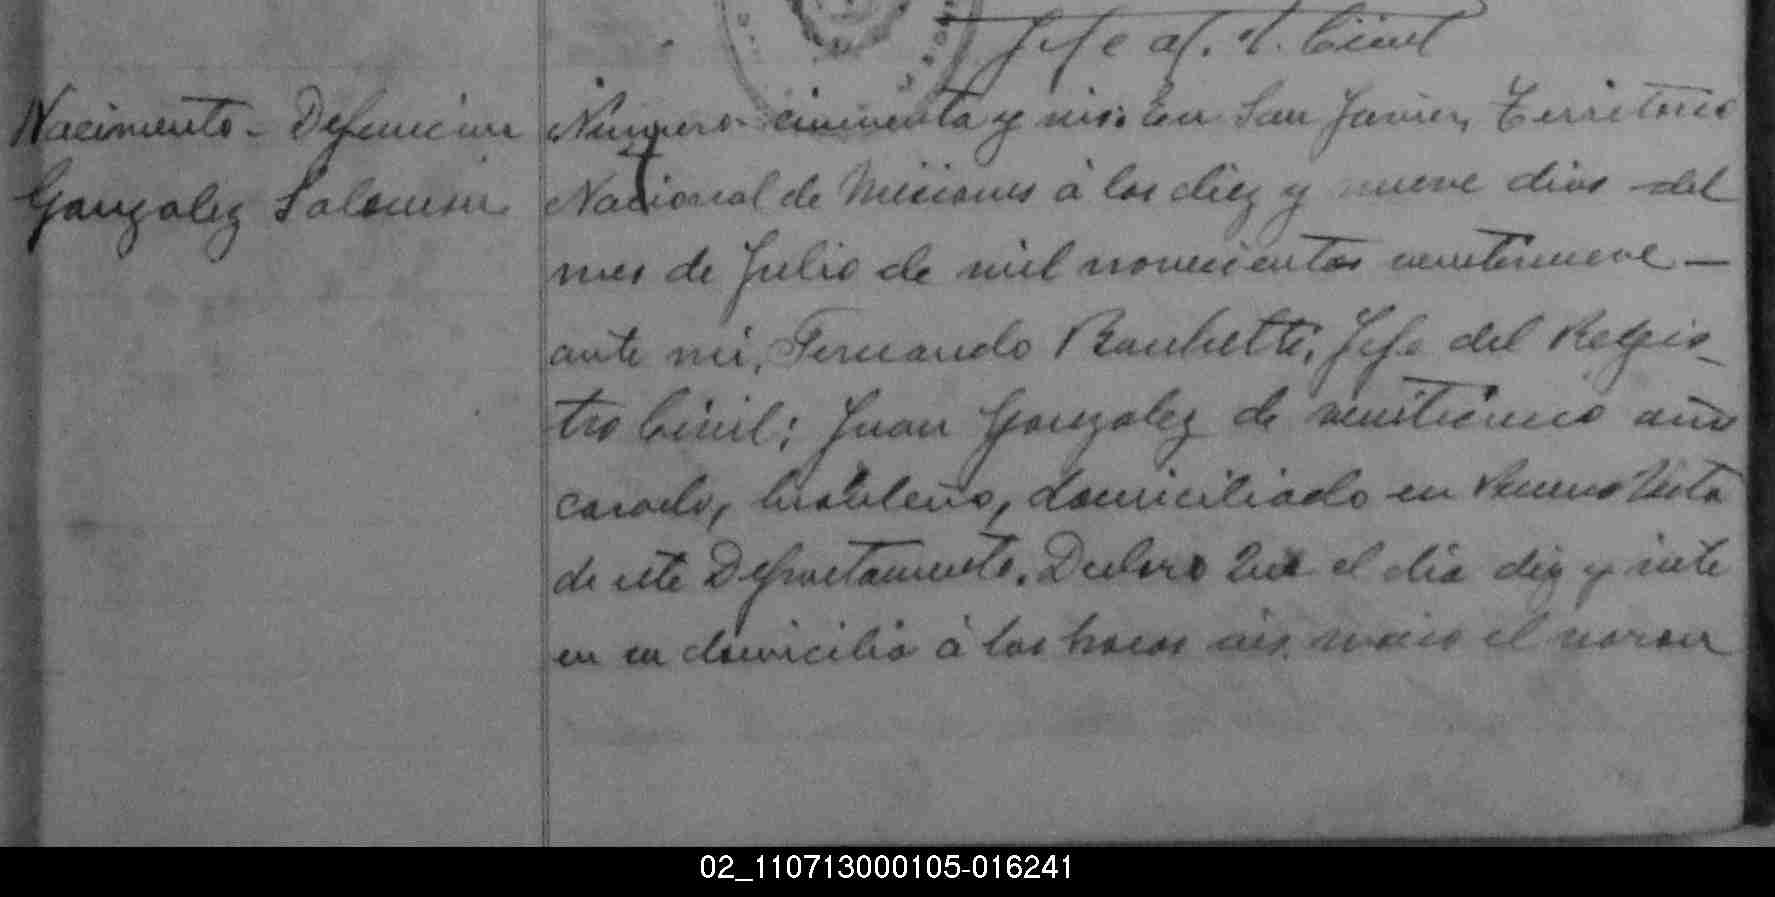 Jefe of. R. Civil
Nacimiento - Defuncion
Gonzalez Salomon
Numero cincuenta y seis: En San Javier, Territorio
Nacional de Misiones á los diez y nueve dias del
mes de Julio de mil novecientos veintinueve —
ante mi, Fernando Jefe del Regis-
tro Civil; Juan Gonzalez de veinticinco años
casado, brasileño, domiciliado en Buena Vista
de este Departamento. Declaró Que el dia diez y siete
en su domicilio á las horas seis nacio el varon
02_110713000105-016241